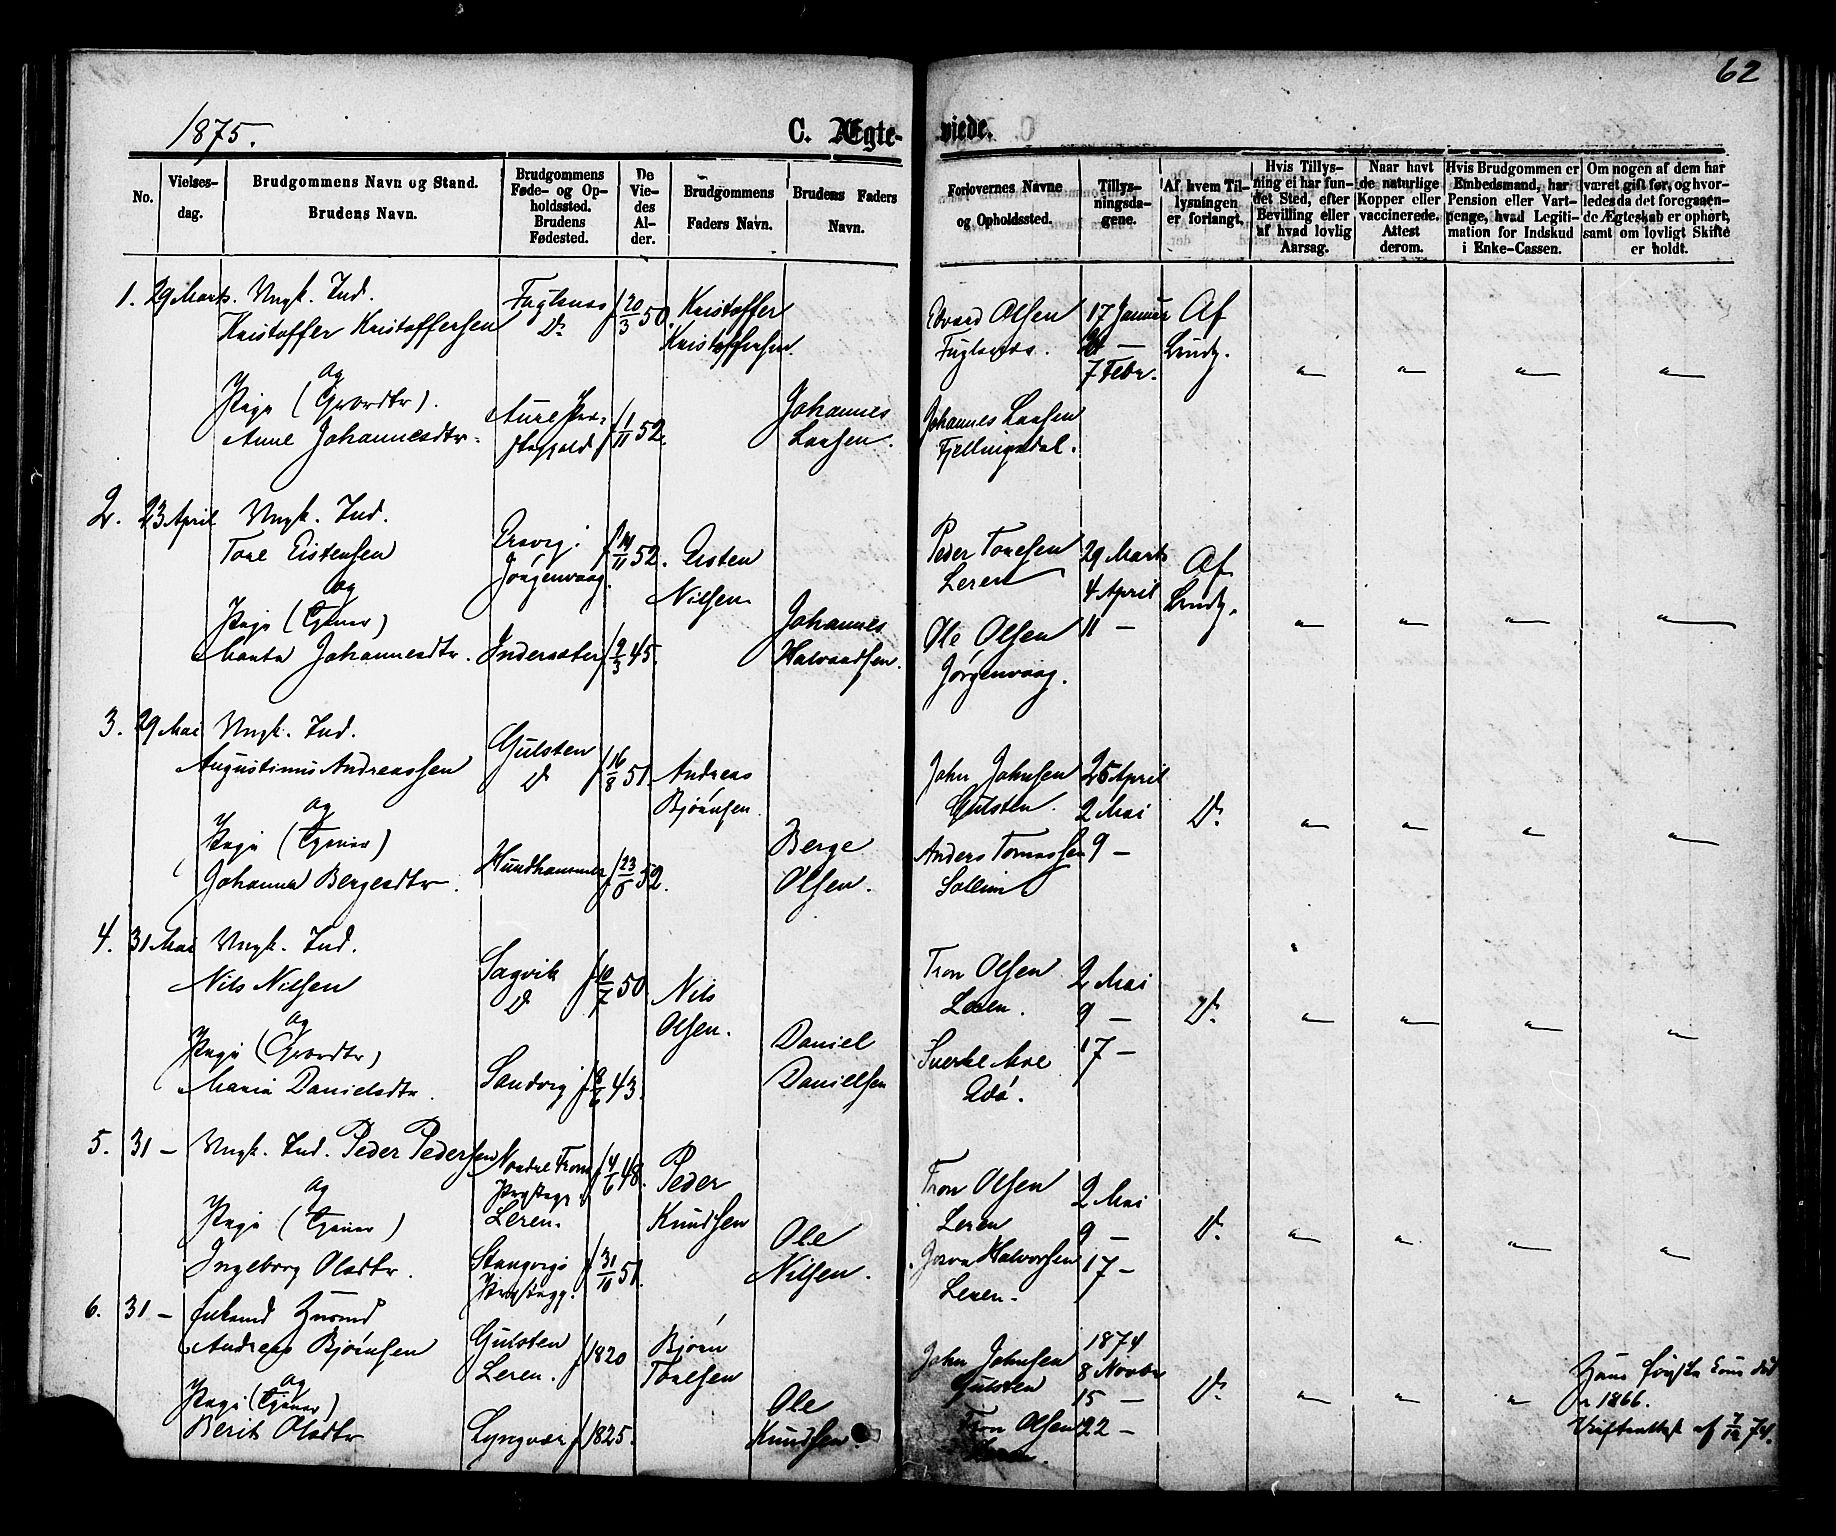 62
1875.
C. Ægte-
viede.
No.
Vielses-
dag.
Brudgommens Navn og Stand.
Brudens Navn.
Brudgommens
Føde- og Op-
holdssted.
Brudens
Fødested.
De
Vie-
des
Al-
der.
Brudgommens
Faders Navn.
Brudens Faders
Navn.
Forlovernes Navne
og Opholdssted.
Tillys-
ningsda-
gene.
Af hvem Til-
lysningen
er forlangt.
Hvis Tillys-
ning ei har fun-
det Sted, efter
Bevilling eller
af hvad lovlig
Aarsag.
Naar havt
de naturlige
Kopper eller
vaccinerede.
Attest
derom.
Hvis Brudgommen er
Embedsmand, har
Pension eller Vart-
penge, hvad Legiti-
mation for Indskud
i Enke-Cassen.
Om nogen af dem har
været gift før, og hvor-
ledes da det foregaaen-
de Ægteskab er ophørt,
samt om lovligt Skifte
er holdt.
1. 29 Marts. Ungk. Ind.
Kristoffer Kristoffersen
Fuglsnes
D.
f 20/3 50.
Kristoffer
Kristoffersen.
og
Pige (Gaardtr).
Anne Johannesdtr.
Aure
f 1/11 52.
Johannes
Larsen.
Edvard Olsen
Fuglsnes.
Johannes Larsen
Fjellingsdal.
17 Januar
—
7 Febr.
Af
Brudg.
" " " "
2. 23 April Ungk. Ind.
Tore Eistensen
Ersvig.
Jørgenvaag.
f 14/11 52.
Eisten
Nilsen.
og
Pige (Tjener)
Marta Johannesdtr.
Indersæter
f 9/3 45.
Johannes
Halvardsen.
Peder Toresen
Leren
Ole Olsen
Jørgenvaag.
29 Marts
4 April
11 —
Af
Brudg.
" " " "
3. 29 Mai Ungk. Ind.
Augustinus Andreassen
Gulsten
D
f 16/8 51.
Andreas
Bjørnsen.
og
Pige (Tjener)
Johanna Bergesdtr.
Hundhammer
52.
Berge
Olsen.
John Johnsen
Gulsten.
Anders Tomassen
25 April
2 Mai
9 —
D.
" " " "
4. 31 Mai Ungk. Ind.
Nils Nilsen
Sagvik
D
f 10/7 50
Nils
Olsen.
og
Pige (Gaardtr)
Maria Danielsdtr.
Sandvig
f 9/6 43.
Daniel
Danielsen
Tron Olsen
Leren.
Sverke Moe
Edø.
2 Mai
9 —
17 —
D.
" " " "
5. 31 — Ungk. Ind. Peder Pedersen
Leren.
f 4/6 48.
Peder
Knudsen
og
Pige (Tjener)
Ingeborg Olsdtr.
Stangvigs
Præstegj.
f 31/10 51.
Ole
Nilsen.
Tron Olsen
Leren
Halvorsen
Leren.
2 Mai
9 —
17 —
D.
" " " "
6. 31 —
Andreas Bjørnsen
Gulsten
Leren.
f 1820
Bjørn
Toresen
og
Pige (Tjener)
Berit Olsdtr
Lyngvær
f 1825.
Ole
Knudsen.
John Johnsen
Gulsten
Tron Olsen
Leren.
1874
8 Novbr
15 —
22 —
D.
" " "
Hans første Kone død
1866.
Skifteattest af 7/12 74.